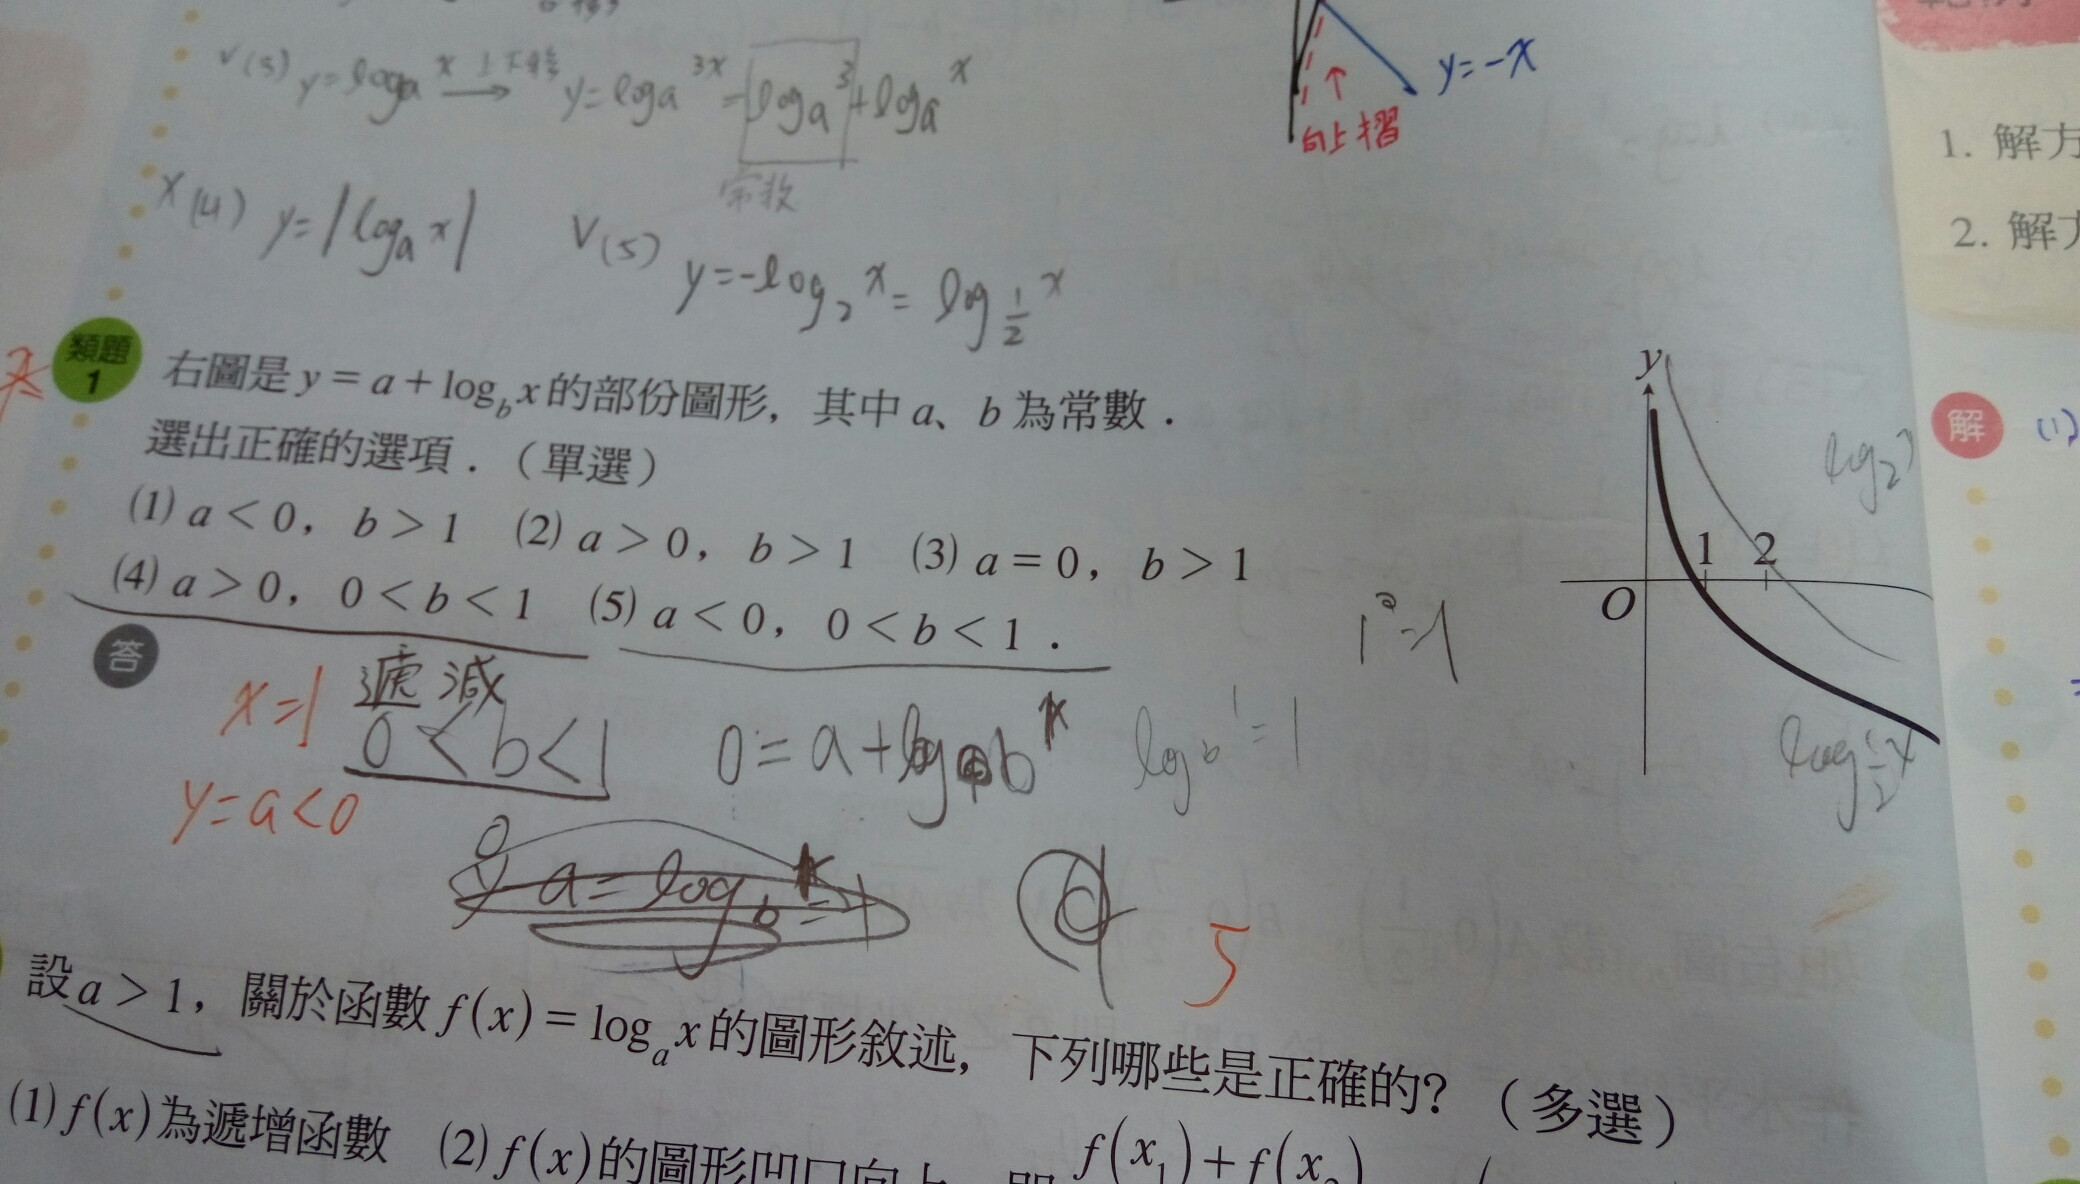 V(3) y=logₐx 上下移→ y=logₐ3x=logₐ3+logₐx
常数
y=-x
向上摺
X(4) y=|logₐx|
V(5) y=-log₂x=log½x
1. 解方
2. 解方
類題
1
右圖是 y = a + log_b x 的部份圖形，其中 a、b 為常數．
選出正確的選項．（單選）
(1) a < 0，b > 1 (2) a > 0，b > 1 (3) a = 0，b > 1
(4) a > 0，0 < b < 1 (5) a < 0，0 < b < 1．
y
1 2
O
log₂
log½x
解 (1)
答
x=1
遞減
0<b<1
y=a<0
0=a+log_b
log_b 1=1
a=log_b
5
設 a > 1，關於函數 f(x) = logₐx 的圖形敘述，下列哪些是正確的？（多選）
(1) f(x) 為遞增函數 (2) f(x) 的圖形凹口向上，即 f(x₁)+f(x₂)